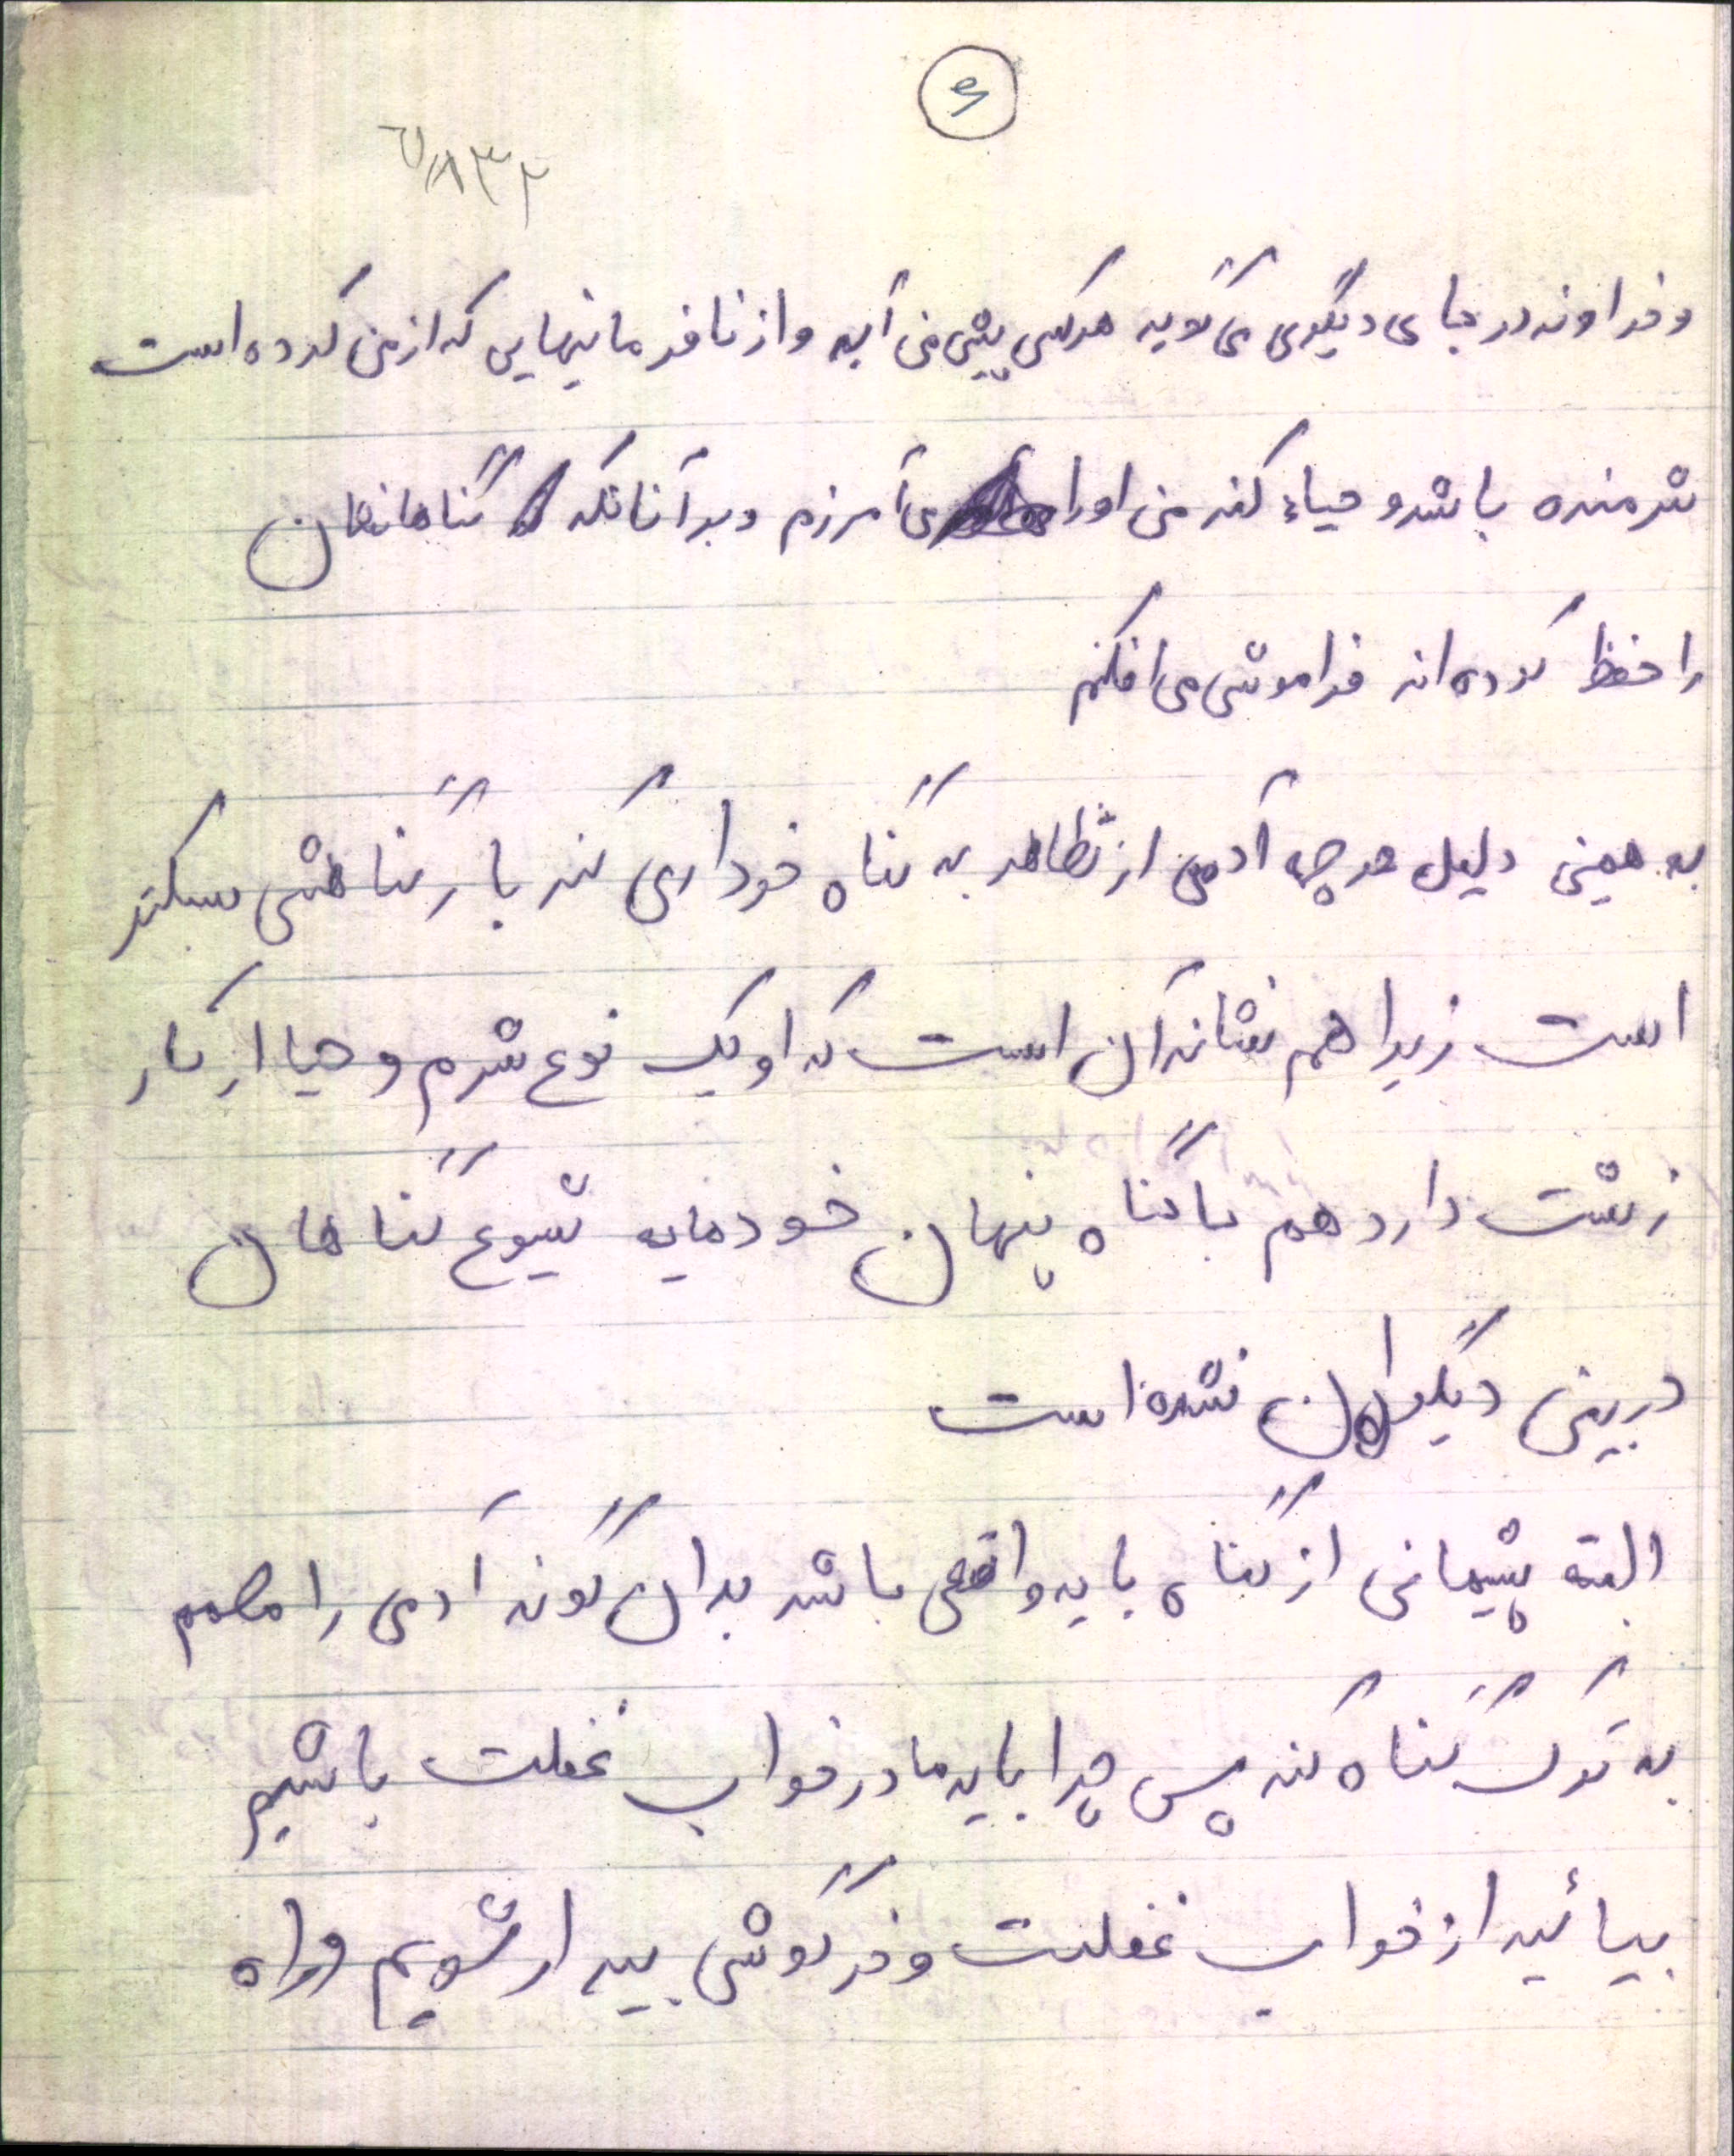 ۶
وخداوند در جای دیگری می گوید هرکس پیش من آید و از نافرمانیهایی که از من کرده است
شرمنده باشد و حیاء کند من او را می آمرزم و بر آنانکه گناهانشان
را حفظ کرده اند فراموشی می افکنم
به همین دلیل هرچه آدمی از تظاهر به گناه خودداری کند بار گناهش سبکتر
است زیرا هم نشانه آن است که او یک نوع شرم و حیا از کار
زشت دارد هم با گناه پنهان خود مایه شیوع گناهان
در بین دیگران نشده است
البته پشیمانی از گناه باید واقعی باشد بدان گونه آدمی را مصمم
به ترک گناه کند پس چرا باید ما در خواب غفلت باشیم
بیائید از خواب غفلت و خرگوشی بیدار شویم و راه